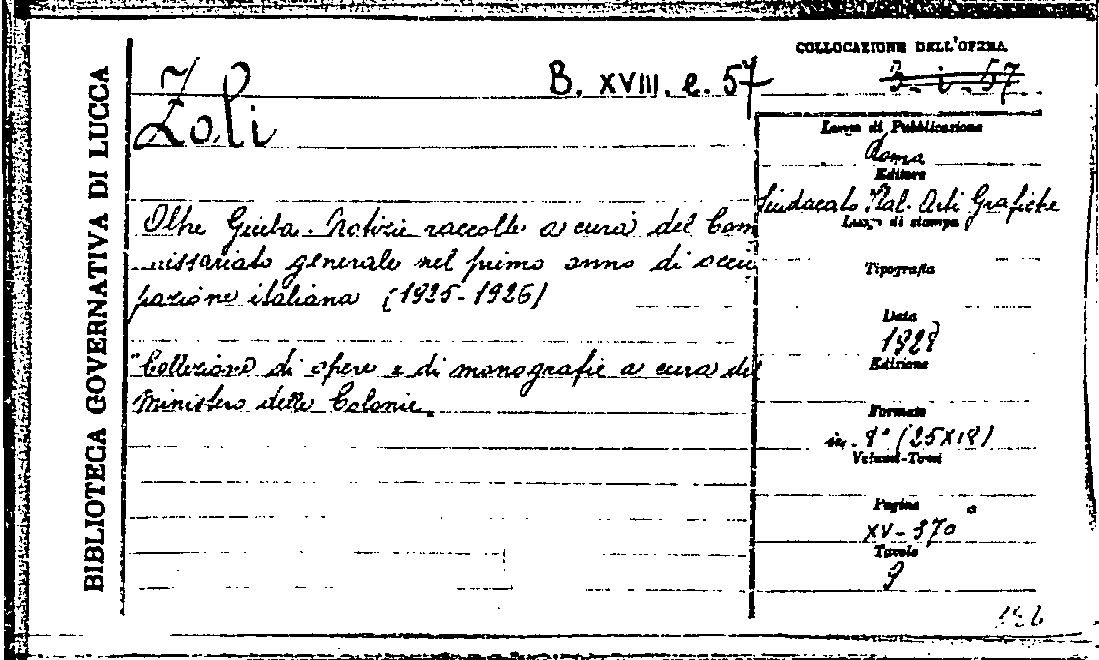 BIBLIOTECA GOVERNATIVA DI LUCCA
B. XVIII. e. 57
Zoli
Oltre Giuba. Notizie raccolte a cura del Com
missariato generale nel primo anno di occu
pazione italiana (1925-1926)
"Collezione di opere e di monografie a cura del
Ministero delle Colonie.
COLLOCAZIONE DELL'OPERA
3-i-57
Luogo di Pubblicazione
Roma
Editore
Sindacato Ital. Arti Grafiche
Luogo di stampa
Tipografia
Data
Edizione
Formato
in. 8° (25X18)
Volumi-Tomi
Pagine
XV-370
Tavole
9